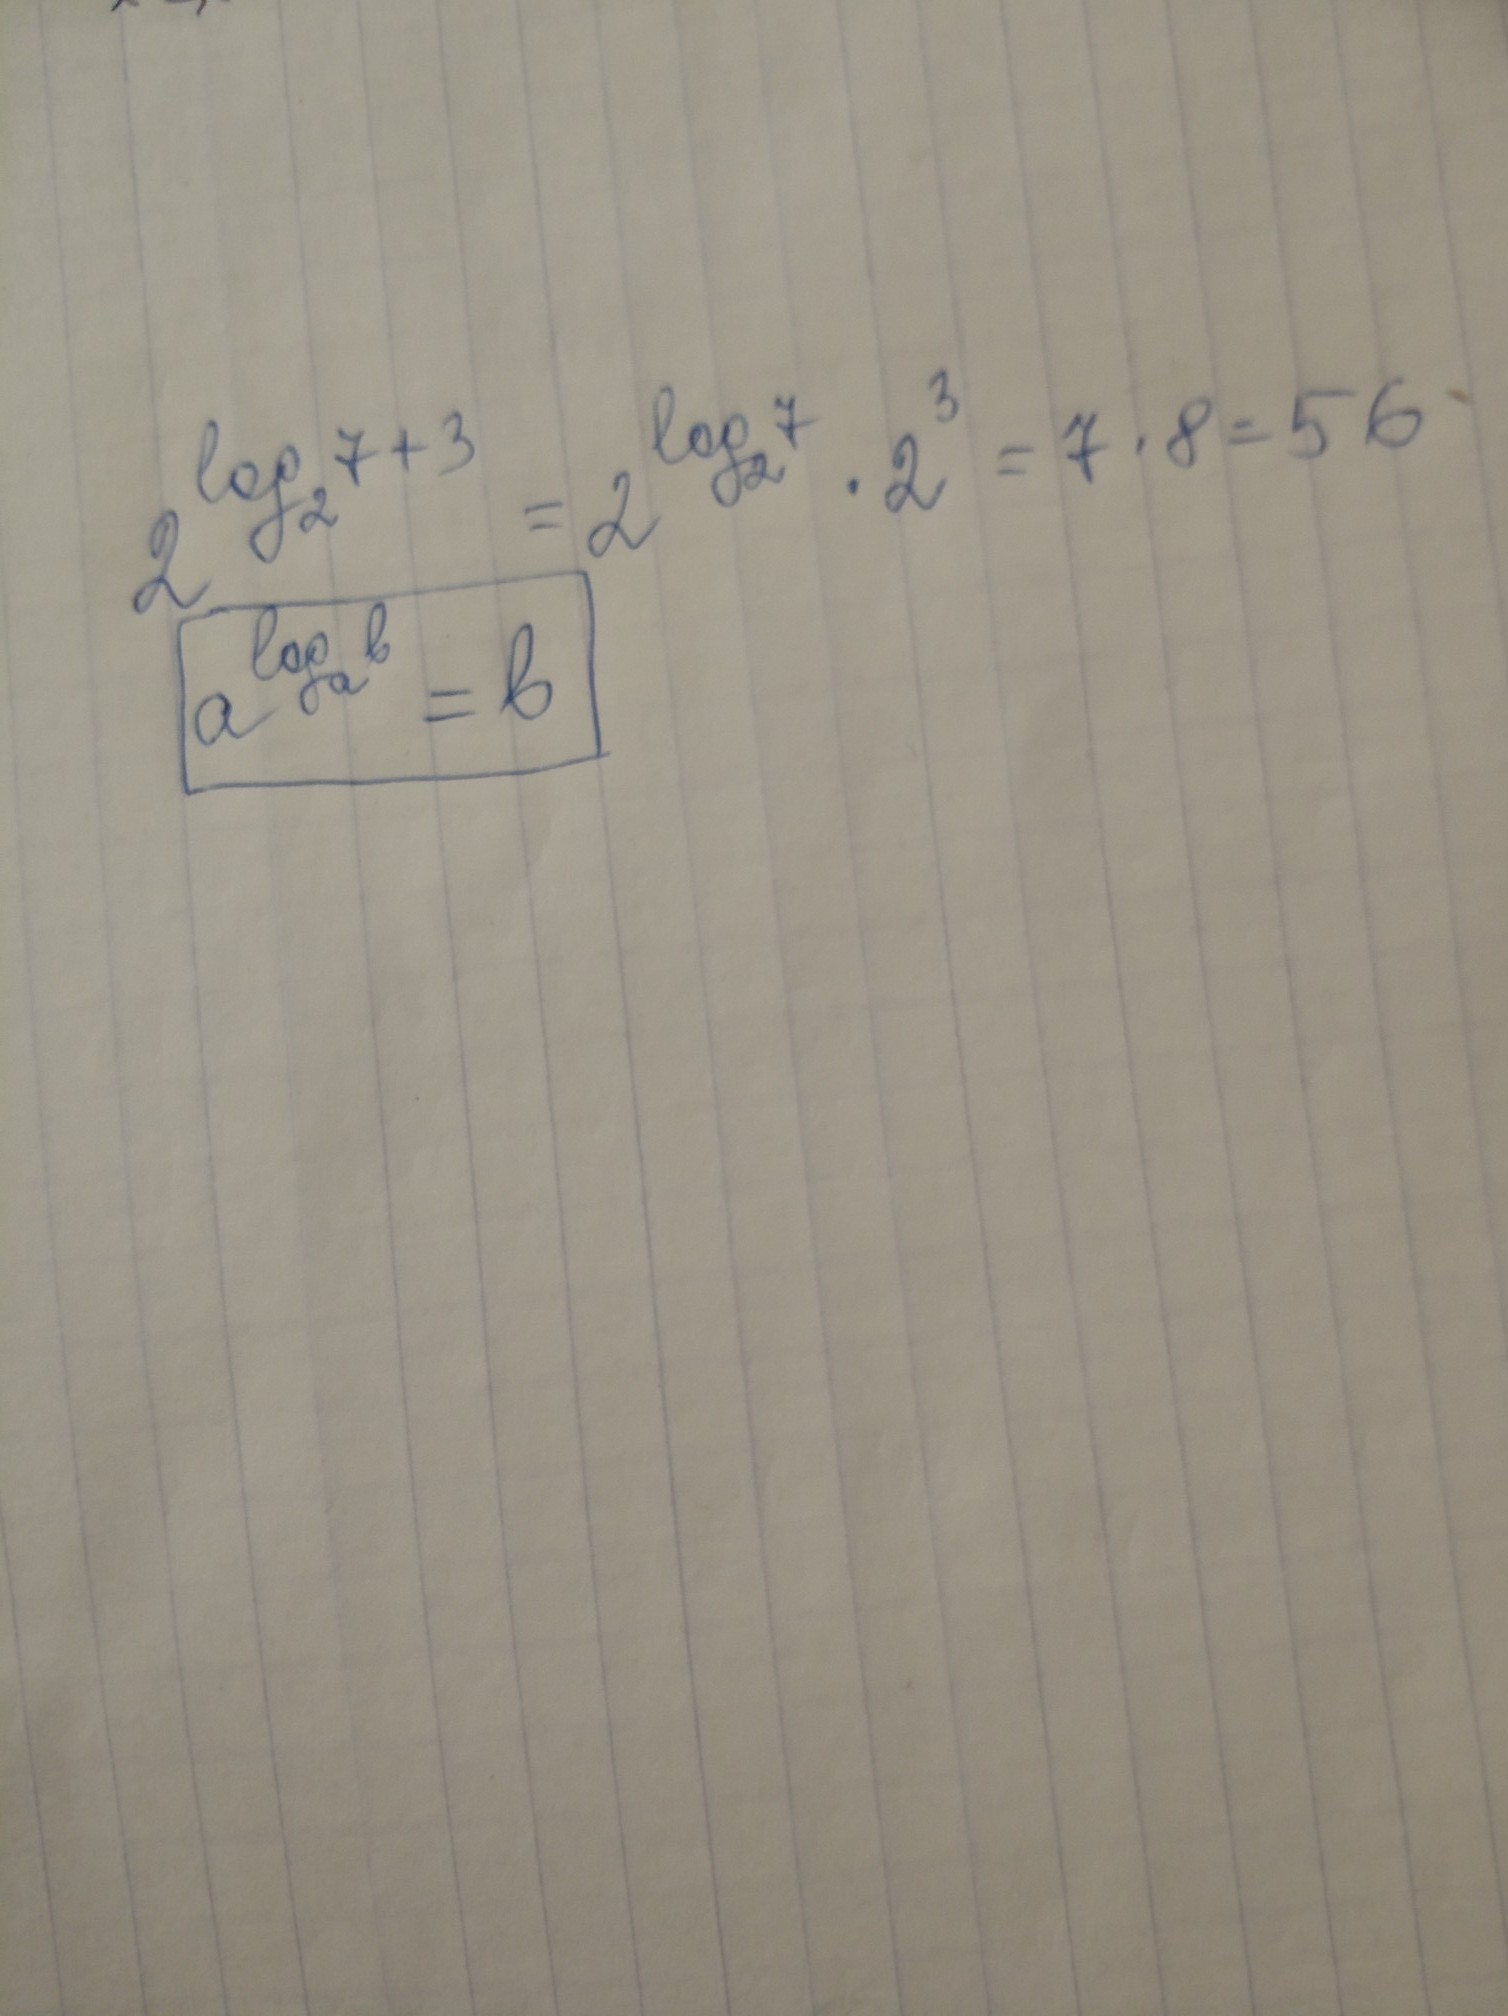 2^{log_2 7+3} = 2^{log_2 7} · 2^3 = 7 · 8 = 56
a^{log_a b} = b